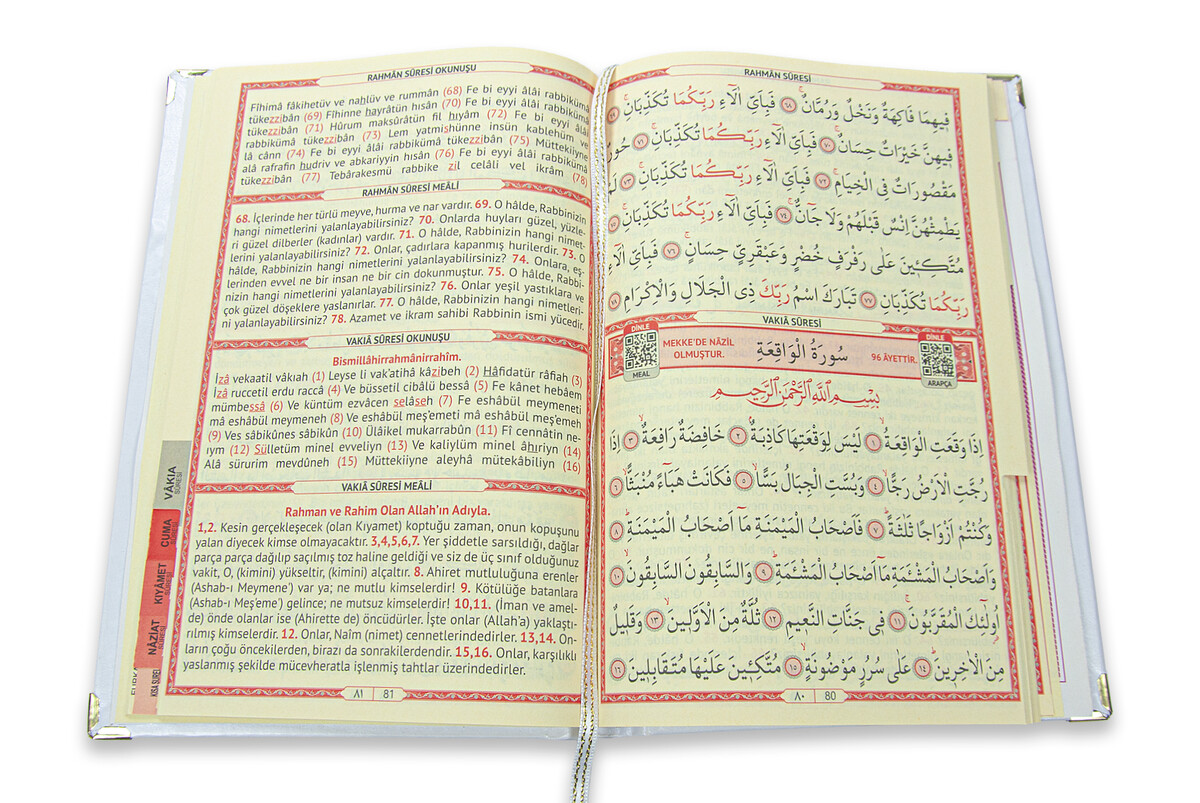 RAHMÂN SÛRESİ
فِيهِمَا فَاكِهَةٌ وَنَخْلٌ وَرُمَّانٌۚ ﴿٦٨﴾ فَبِاَيِّ اٰلَٓاءِ رَبِّكُمَا تُكَذِّبَانِۚ ﴿٦٩﴾
فِيهِنَّ خَيْرَاتٌ حِسَانٌۚ ﴿٧٠﴾ فَبِاَيِّ اٰلَٓاءِ رَبِّكُمَا تُكَذِّبَانِۚ ﴿٧١﴾ حُورٌ
مَقْصُورَاتٌ فِي الْخِيَامِۚ ﴿٧٢﴾ فَبِاَيِّ اٰلَٓاءِ رَبِّكُمَا تُكَذِّبَانِۚ ﴿٧٣﴾ لَمْ
يَطْمِثْهُنَّ اِنْسٌ قَبْلَهُمْ وَلَا جَٓانٌّۚ ﴿٧٤﴾ فَبِاَيِّ اٰلَٓاءِ رَبِّكُمَا تُكَذِّبَانِۚ ﴿٧٥﴾
مُتَّكِـِٔينَ عَلٰى رَفْرَفٍ خُضْرٍ وَعَبْقَرِيٍّ حِسَانٍۚ ﴿٧٦﴾ فَبِاَيِّ اٰلَٓاءِ
رَبِّكُمَا تُكَذِّبَانِ ﴿٧٧﴾ تَبَارَكَ اسْمُ رَبِّكَ ذِي الْجَلَالِ وَالْاِكْرَامِ ﴿٧٨﴾
VAKIÂ SÛRESİ
DİNLE
MEAL
MEKKE'DE NÂZİL
OLMUŞTUR.
سُورَةُ الْوَاقِعَةِ
96 ÂYETTİR.
DİNLE
ARAPÇA
بِسْمِ اللّٰهِ الرَّحْمٰنِ الرَّحِيمِ
اِذَا وَقَعَتِ الْوَاقِعَةُۙ ﴿١﴾ لَيْسَ لِوَقْعَتِهَا كَاذِبَةٌۢ ﴿٢﴾ خَافِضَةٌ رَافِعَةٌۙ ﴿٣﴾ اِذَا
رُجَّتِ الْاَرْضُ رَجًّاۙ ﴿٤﴾ وَبُسَّتِ الْجِبَالُ بَسًّاۙ ﴿٥﴾ فَكَانَتْ هَبَٓاءً مُنْبَثًّاۙ ﴿٦﴾
وَكُنْتُمْ اَزْوَاجًا ثَلٰثَةًۜ ﴿٧﴾ فَاَصْحَابُ الْمَيْمَنَةِ مَٓا اَصْحَابُ الْمَيْمَنَةِۜ ﴿٨﴾
وَاَصْحَابُ الْمَشْـَٔمَةِ مَٓا اَصْحَابُ الْمَشْـَٔمَةِۜ ﴿٩﴾ وَالسَّابِقُونَ السَّابِقُونَۙ ﴿١٠﴾
اُو۬لٰٓئِكَ الْمُقَرَّبُونَۚ ﴿١١﴾ فِي جَنَّاتِ النَّعِيمِ ﴿١٢﴾ ثُلَّةٌ مِنَ الْاَوَّلِينَۙ ﴿١٣﴾ وَقَلِيلٌ
مِنَ الْاٰخِرِينَۜ ﴿١٤﴾ عَلٰى سُرُرٍ مَوْضُونَةٍۙ ﴿١٥﴾ مُتَّكِـِٔينَ عَلَيْهَا مُتَقَابِلِينَ ﴿١٦﴾
٨٠ 80
RAHMÂN SÛRESİ OKUNUŞU
Fîhimâ fâkihetüv ve nahlüv ve rummân (68) Fe bi eyyi âlâi rabbikümâ
tükezzibân (69) Fîhinne hayrâtün hısân (70) Fe bi eyyi âlâi
rabbikümâ tükezzibân (71) Hûrum maksûrâtün fil hıyâm (72) Fe bi eyyi âlâi
rabbikümâ tükezzibân (73) Lem yatmishünne insün kablehüm ve
lâ cânn (74) Fe bi eyyi âlâi rabbikümâ tükezzibân (75) Müttekiiyne
alâ rafrafin hudriv ve abkariyyin hısân (76) Fe bi eyyi âlâi rabbikümâ
tükezzibân (77) Tebârakesmü rabbike zil celâli vel ikrâm (78)
RAHMÂN SÛRESİ MEÂLİ
68. İçlerinde her türlü meyve, hurma ve nar vardır. 69. O hâlde, Rabbinizin
hangi nimetlerini yalanlayabilirsiniz? 70. Onlarda huyları güzel, yüzle-
ri güzel dilberler (kadınlar) vardır. 71. O hâlde, Rabbinizin hangi nimet-
lerini yalanlayabilirsiniz? 72. Onlar, çadırlara kapanmış hurilerdir. 73. O
hâlde, Rabbinizin hangi nimetlerini yalanlayabilirsiniz? 74. Onlara, eş-
lerinden evvel ne bir insan ne bir cin dokunmuştur. 75. O hâlde, Rabbi-
nizin hangi nimetlerini yalanlayabilirsiniz? 76. Onlar yeşil yastıklara ve
çok güzel döşeklere yaslanırlar. 77. O hâlde, Rabbinizin hangi nimetleri-
ni yalanlayabilirsiniz? 78. Azamet ve ikram sahibi Rabbinin ismi yücedir.
VAKIÂ SÛRESİ OKUNUŞU
Bismillâhirrahmânirrahîm.
İzâ vekaatil vâkıah (1) Leyse li vak'atihâ kâzibeh (2) Hâfidatür râfiah (3)
İzâ ruccetil erdu raccâ (4) Ve büssetil cibâlü bessâ (5) Fe kânet hebâem
mümbessâ (6) Ve küntüm ezvâcen selâseh (7) Fe eshâbül meymeneti
mâ eshâbül meymeneh (8) Ve eshâbül meş'emeti mâ eshâbül meş'emeh
(9) Ves sâbikûnes sâbikûn (10) Ülâikel mukarrabûn (11) Fî cennâtin ne-
ıym (12) Sülletüm minel evveliyn (13) Ve kaliylüm minel âhıriyn (14)
Alâ sürurim mevdûneh (15) Müttekiiyne aleyhâ mütekâbiliyn (16)
VAKIÂ SÛRESİ MEÂLİ
Rahman ve Rahim Olan Allah'ın Adıyla.
1,2. Kesin gerçekleşecek (olan Kıyamet) koptuğu zaman, onun kopuşunu
yalan diyecek kimse olmayacaktır. 3,4,5,6,7. Yer şiddetle sarsıldığı, dağlar
parça parça dağılıp saçılmış toz haline geldiği ve siz de üç sınıf olduğunuz
vakit, O, (kimini) yükseltir, (kimini) alçaltır. 8. Ahiret mutluluğuna erenler
(Ashab-ı Meymene') var ya; ne mutlu kimselerdir! 9. Kötülüğe batanlara
(Ashab-ı Meş'eme') gelince; ne mutsuz kimselerdir! 10,11. (İman ve amel-
de) önde olanlar ise (Ahirette de) öncüdürler. İşte onlar (Allah'a) yaklaştı-
rılmış kimselerdir. 12. Onlar, Naîm (nimet) cennetlerindedirler. 13,14. On-
ların çoğu öncekilerden, birazı da sonrakilerdendir. 15,16. Onlar, karşılıklı
yaslanmış şekilde mücevheratla işlenmiş tahtlar üzerindedirler.
٨١ 81
VÂKIA
SÛRESİ
CUMA
SÛRESİ
KIYÂMET
SÛRESİ
NÂZİAT
SÛRESİ